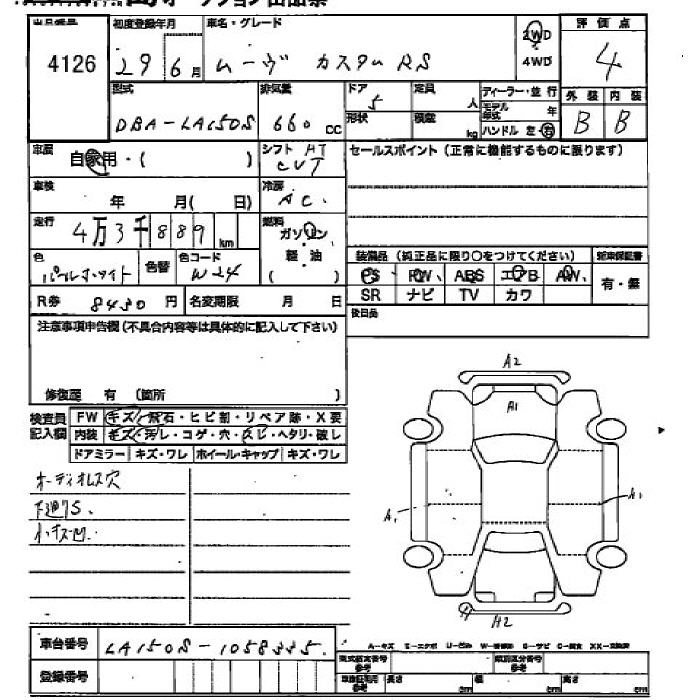 出品番号 初度登録年月 車名・グレード 評価点
4126 29 6月 ムーヴ カスタムRS 2WD 4WD 4
型式 排気量 ドア 定員 ディーラー・並行 外装 内装
DBA-LA150S 660 cc 5 人 モデル年式 年 B B
形状 積載 kg ハンドル 左・右
車歴 自家用・( ) シフト AT CVT セールスポイント(正常に機能するものに限ります)
車検 年 月(日) 冷房 AC.
走行 4万3千889km 燃料 ガソリン 軽・油 ( )
色 パールホワイト 色替 色コード W24 装備品(純正品に限り○をつけてください) 新車保証書
PS PW ABS エアB AW. 有・無
R券 8430円 名変期限 月 日 SR ナビ TV カワ
注意事項申告欄(不具合内容等は具体的に記入して下さい) 後日品
修復歴 有 (箇所 )
検査員記入欄 FW キズ・飛石・ヒビ割・リペア跡・X要
内装 キズ・汚レ・コゲ・穴・スレ・ヘタリ・破レ
ドアミラー キズ・ワレ ホイールキャップ キズ・ワレ
オーディオレス穴
下廻りS.
小キズ凹.
A2
A1
A1 A1
A2
車台番号 LA150S-1058335.
A-キズ E-エクボ U-凹み W-補修跡 S-サビ C-腐食 XX-交換済
登録番号 型式指定番号 参考 類別区分番号 参考
長さ cm 幅 cm 高さ cm